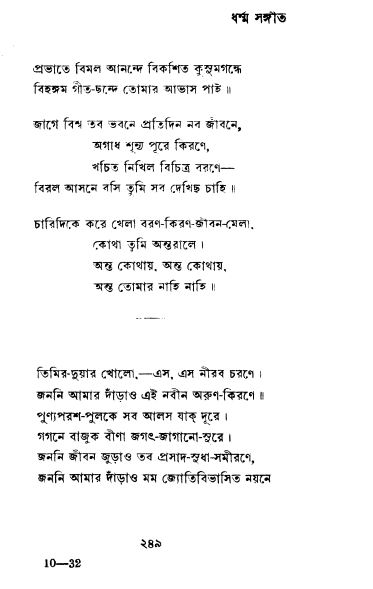 ধর্ম্ম সঙ্গীত
প্রভাতে বিমল আনন্দে বিকশিত কুসুমগন্ধে
বিহঙ্গম গীত-ছন্দে তোমার আভাস পাই॥
জাগে বিশ্ব তব ভবনে প্রতিদিন নব জীবনে,
অগাধ শূন্য পূরে কিরণে,
খচিত নিখিল বিচিত্র বরণে—
বিরল আসনে বসি তুমি সব দেখিছ চাহি॥
চারিদিকে করে খেলা বরণ-কিরণ-জীবন-মেলা,
কোথা তুমি অন্তরালে।
অন্ত কোথায়, অন্ত কোথায়,
অন্ত তোমার নাহি নাহি॥
তিমির-দুয়ার খোলো,—এস, এস নীরব চরণে।
জননি আমার দাঁড়াও এই নবীন অরুণ-কিরণে॥
পুণ্যপরশ-পুলকে সব আলস যাক্ দূরে।
গগনে বাজুক বীণা জগৎ-জাগানো-সুরে।
জননি জীবন জুড়াও তব প্রসাদ-সুধা-সমীরণে,
জননি আমার দাঁড়াও মম জ্যোতিবিভাসিত নয়নে
২৪৯
10—32